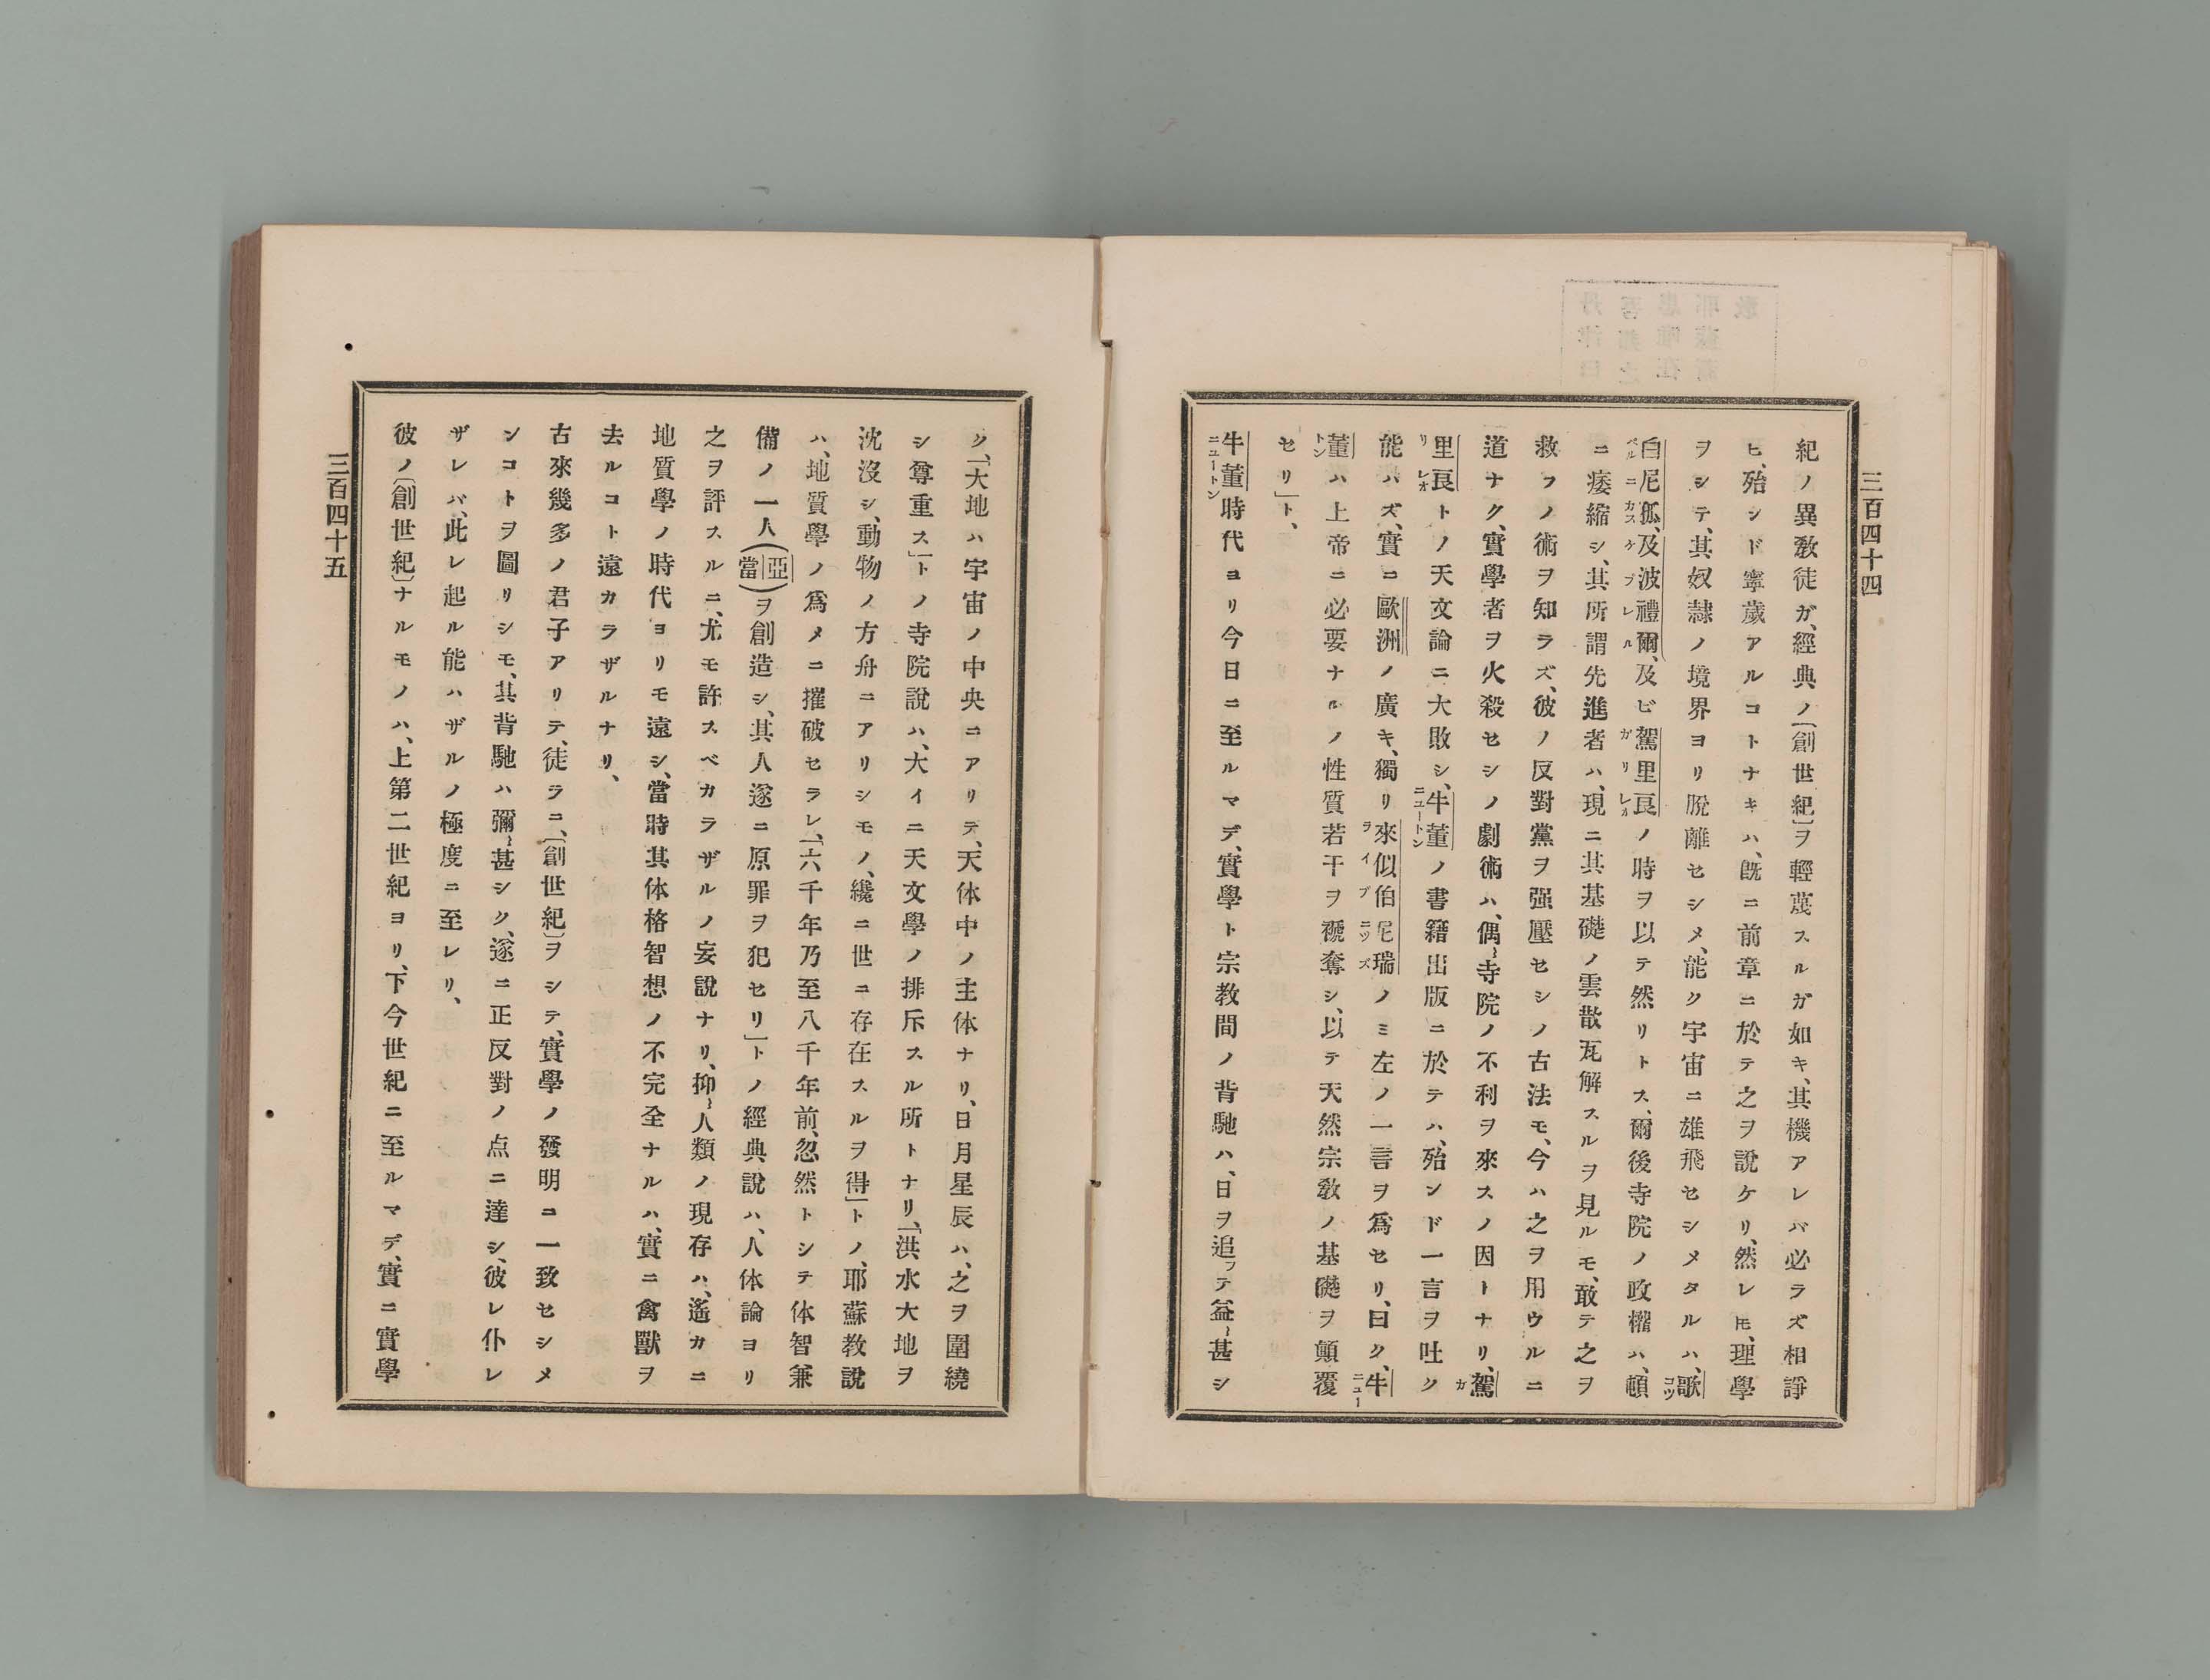 三百四十四
紀ノ異教徒ガ、經典ノ「創世紀」ヲ輕蔑スルガ如キ、其機アレバ必ラズ相諍
ヒ、殆シド寧歲アルコトナキハ、旣ニ前章ニ於テ之ヲ說ケリ、然レ𪜈、理學
ヲシテ、其奴隷ノ境界ヨリ脫離セシメ、能ク宇宙ニ雄飛セシメタルハ、歌
白尼狐、及波禮爾、及ビ駕里良ノ時ヲ以テ然リトス、爾後寺院ノ政權ハ、頓
ニ痿縮シ、其所謂先進者ハ、現ニ其基礎ノ雲散瓦解スルヲ見ルモ、敢テ之ヲ
救フノ術ヲ知ラズ、彼ノ反對黨ヲ强壓セシノ古法モ、今ハ之ヲ用ウルニ
道ナク、實學者ヲ火殺セシノ劇術ハ、偶〻寺院ノ不利ヲ來スノ因トナリ、駕
里良トノ天文論ニ大敗シ、牛董ノ書籍出版ニ於テハ、殆ンド一言ヲ吐ク
能ハズ、實ニ歐洲ノ廣キ、獨リ來似伯尼瑞ノミ左ノ一言ヲ爲セリ、曰ク、牛
董ハ上帝ニ必要ナルノ性質若干ヲ褫奪シ、以テ天然宗敎ノ基礎ヲ顚覆
セリ」ト、
牛董時代ヨリ今日ニ至ルマデ、實學ト宗教間ノ背馳ハ、日ヲ追フテ益〻甚シ
ク、「大地ハ宇宙ノ中央ニアリテ、天体中ノ主体ナリ、日月星辰ハ、之ヲ圍繞
シ尊重ス」トノ寺院說ハ、大イニ天文學ノ排斥スル所トナリ、「洪水大地ヲ
沈沒シ、動物ノ方舟ニアリシモノ、纔ニ世ニ存在スルヲ得」トノ、耶蘇教說
ハ、地質學ノ爲メニ摧破セラレ、「六千年乃至八千年前、忽然トシテ体智兼
備ノ一人(亞當)ヲ創造シ、其人遂ニ原罪ヲ犯セリ」トノ經典說ハ、人体論ヨリ
之ヲ評スルニ、尤モ許スベカラザルノ妄說ナリ、抑〻人類ノ現存ハ、遙カニ
地質學ノ時代ヨリモ遠シ、當時其体格智想ノ不完全ナルハ、實ニ禽獸ヲ
去ルコト遠カラザルナリ、
古來幾多ノ君子アリテ、徒ラニ、「創世紀」ヲシテ、實學ノ發明ニ一致セシメ
ンコトヲ圖リシモ、其背馳ハ彌〻甚シク、遂ニ正反對ノ点ニ達シ、彼レ仆レ
ザレバ、此レ起ル能ハザルノ極度ニ至レリ、
彼ノ「創世紀」ナルモノハ、上第二世紀ヨリ、下今世紀ニ至ルマデ、實ニ實學
三百四十五